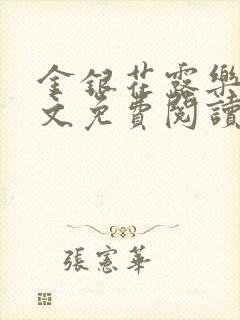 金銀花露樂
文免費閱讀
張憲華